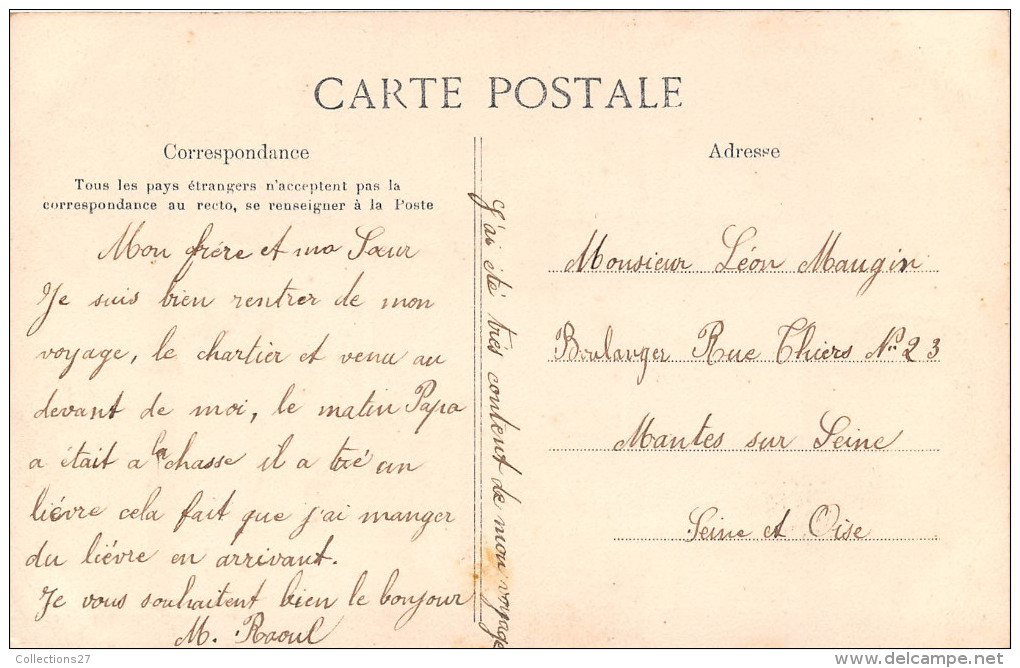 CARTE POSTALE
Correspondance
Tous les pays étrangers n'acceptent pas la
correspondance au recto, se renseigner à la Poste
Mon frère et ma Sœur
Je suis bien rentrer de mon
voyage, le chartier et venu au
devant de moi, le matin Papa
a était a la chasse il a tué un
liévre cela fait que j'ai manger
du liévre en arrivant.
Je vous souhaitent bien le bonjour
M. Raoul
J'ai été très content de mon voyage
Adresse
Monsieur Léon Maugin
Boulanger Rue Thiers No 23
Mantes sur Seine
Seine et Oise
Collections27
delcampe.net